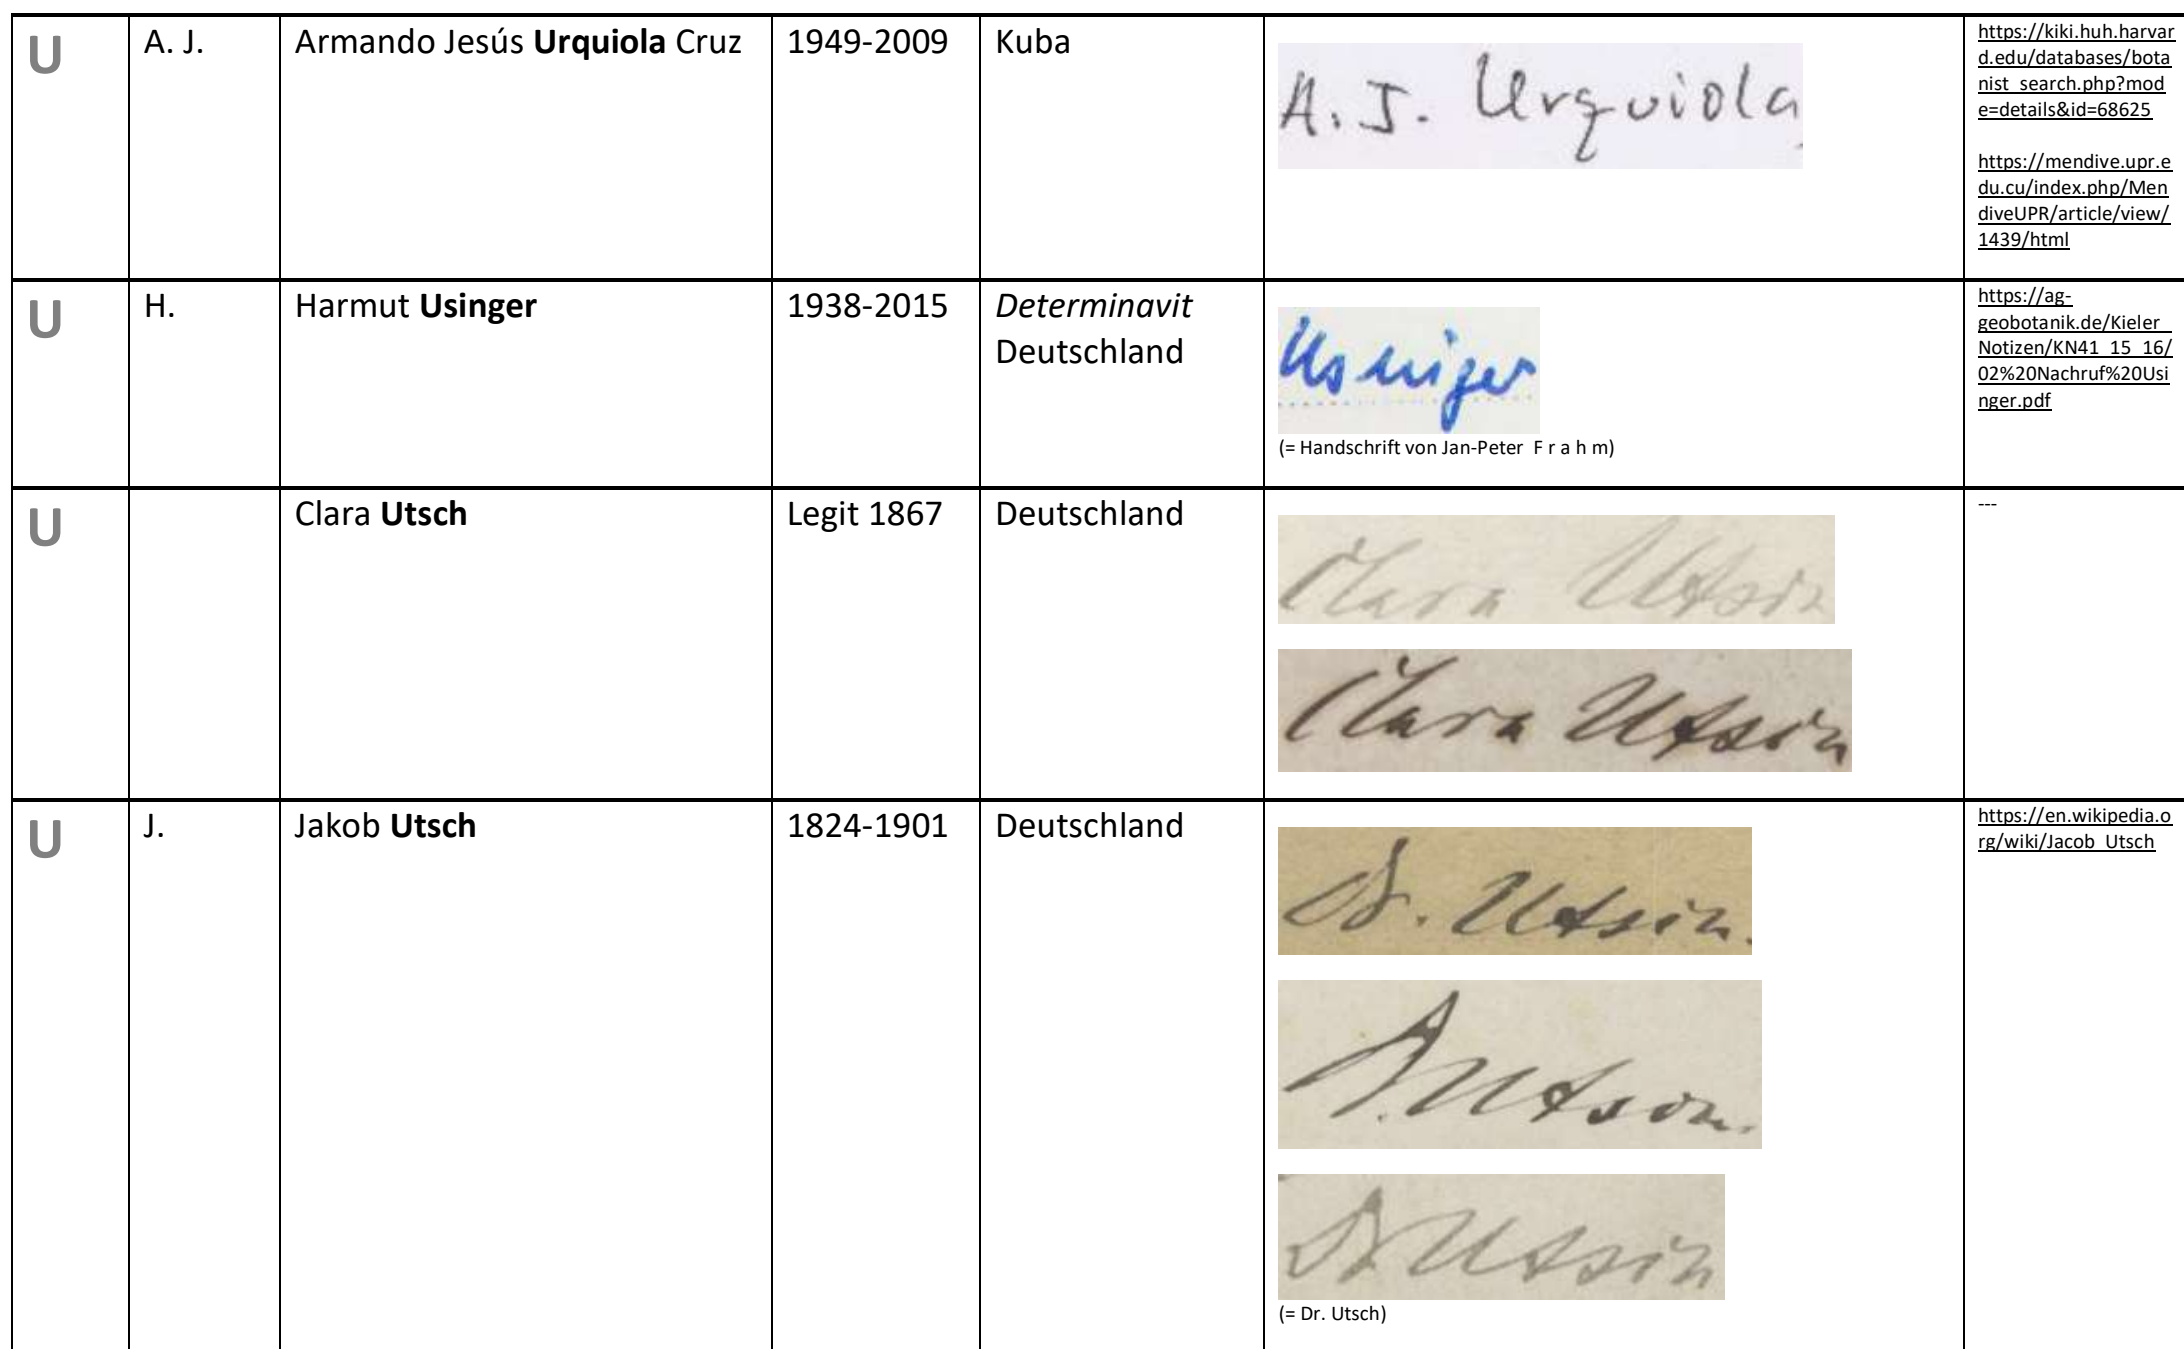 U A. J. Armando Jesús Urquiola Cruz 1949-2009 Kuba
A. J. Urquiola
https://kiki.huh.harvar
d.edu/databases/bota
nist_search.php?mod
e=details&id=68625
https://mendive.upr.e
du.cu/index.php/Men
diveUPR/article/view/
1439/html
U H. Harmut Usinger 1938-2015 Determinavit
Deutschland
Usinger
(= Handschrift von Jan-Peter F r a h m)
https://ag-
geobotanik.de/Kieler_
Notizen/KN41_15_16/
02%20Nachruf%20Usi
nger.pdf
U Clara Utsch Legit 1867 Deutschland
Clara Utsch
Clara Utsch
---
U J. Jakob Utsch 1824-1901 Deutschland
Dr. Utsch.
Dr Utsch.
Dr Utsch
(= Dr. Utsch)
https://en.wikipedia.o
rg/wiki/Jacob_Utsch